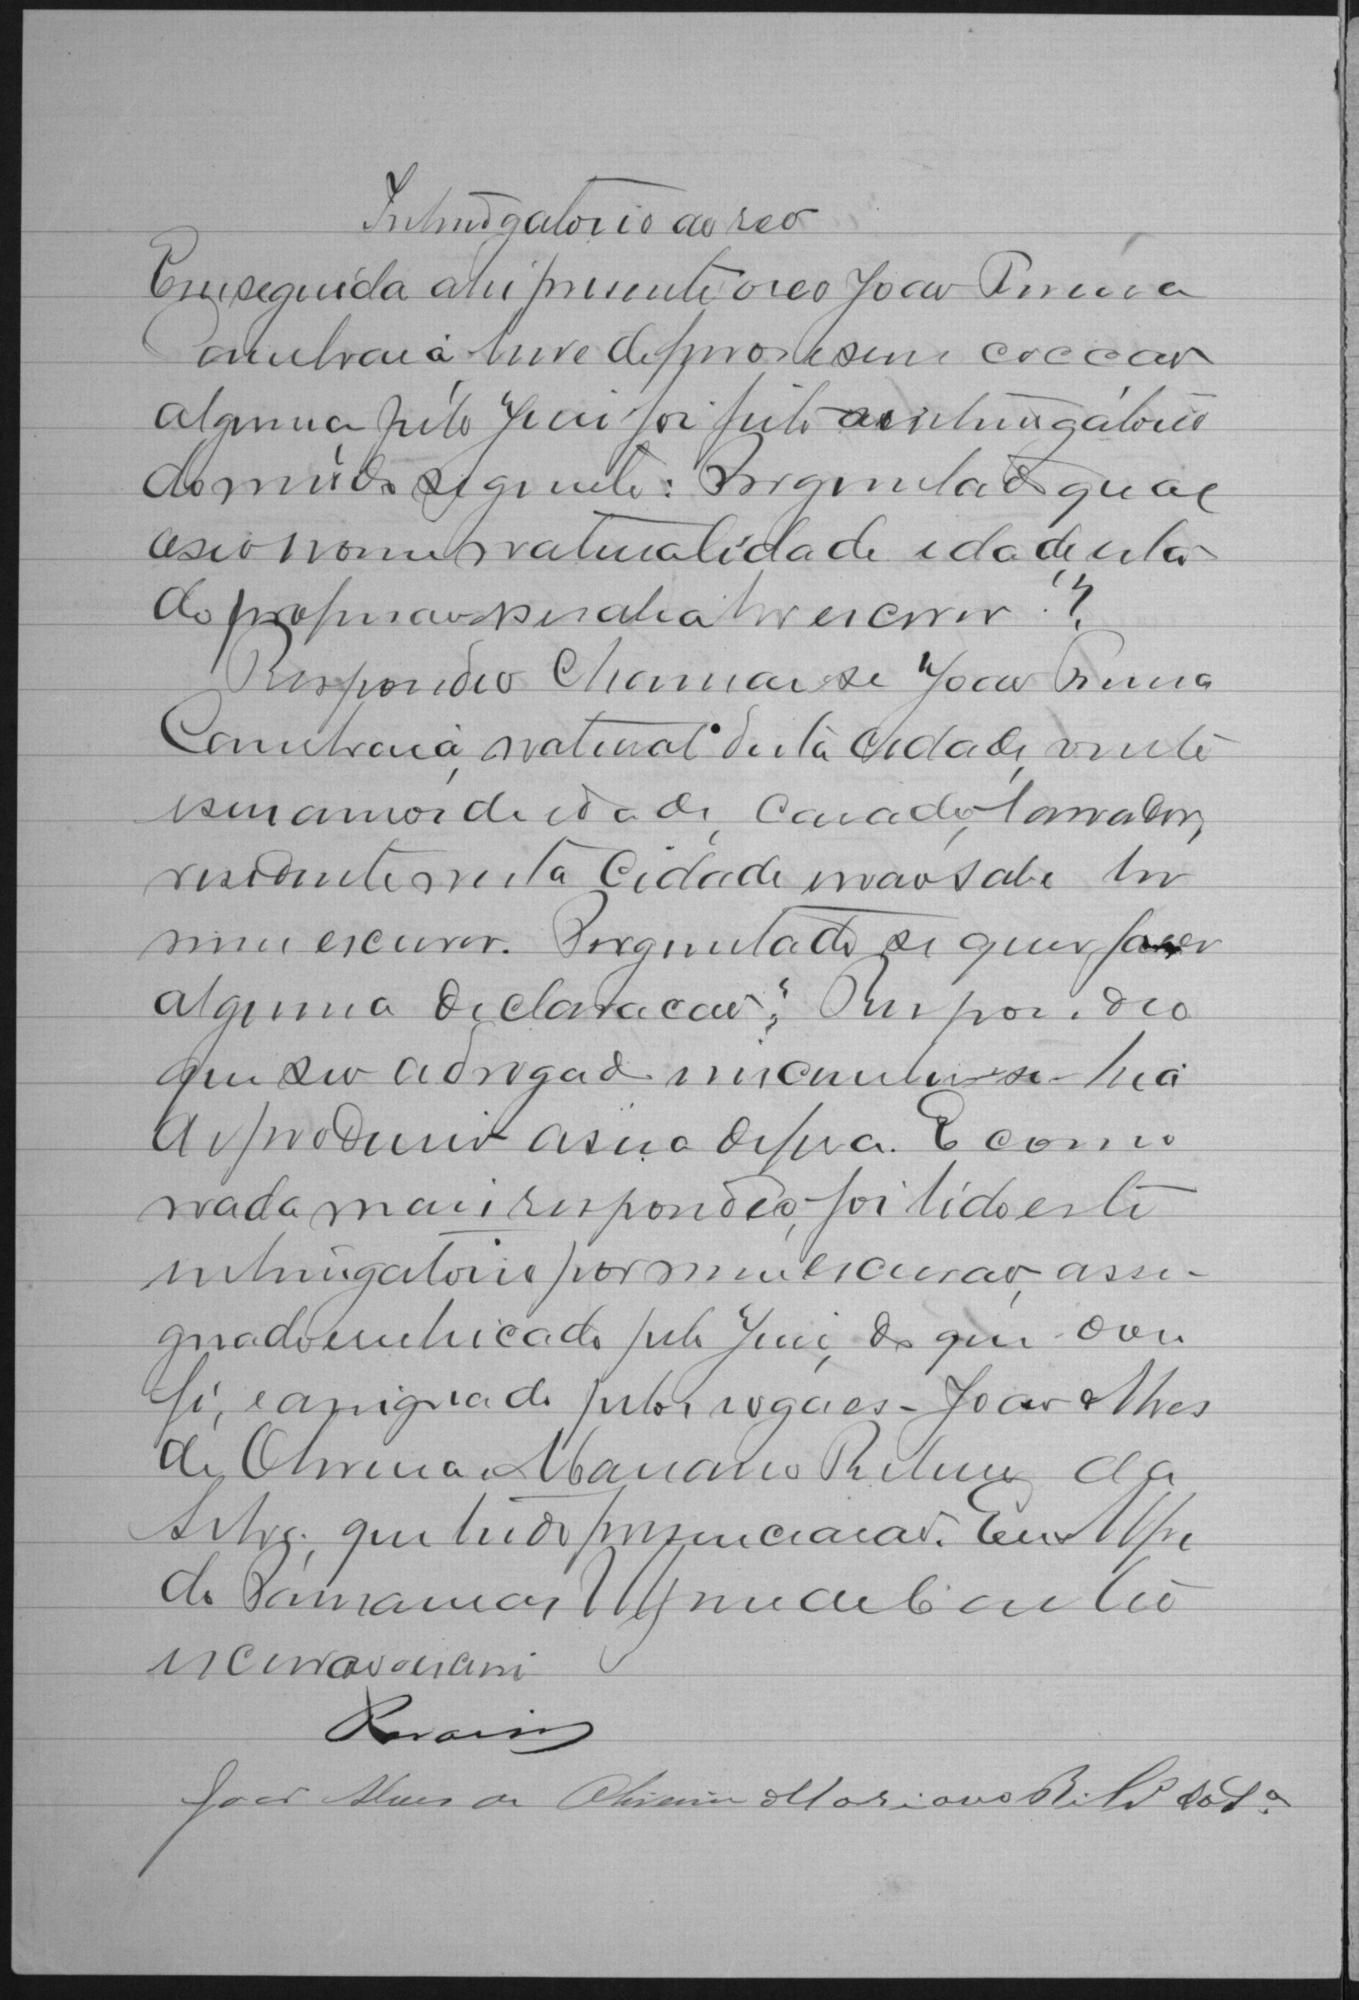 Interrogatorio ao reo
Em seguida ahi presente o reo Joao Pereira
livre de ferros e sem coccao
alguma pelo Juiz foi feito o interrogatorio
do modo seguinte: Perguntado qual
o seo nome naturalidade idade esta
do profissao e se sabia ler e escrever?
Respondeo chamar-se Joao Pereira
natural desta cidade, vinte
e seis annos de idade, casado, lavrador,
residente nesta cidade e nao sabe ler
nem escrever. Perguntado se quer fazer
alguma declaracao? Respondeo
que seo advogado
de produzir a sua defesa. E como
nada mais respondeo, foi lido este
interrogatorio por mim escrivao, assi-
gnado e rubricado pelo Juiz, do que dou
fé, e assignado pelos rogaes - Joao Alves
de Oliveira e Mariano Ribeiro da
Silva, que tudo presenciarao. Eu
do
escrivao o escrevi
Joao Alves de Oliveira Mariano Rib.º da S.ª